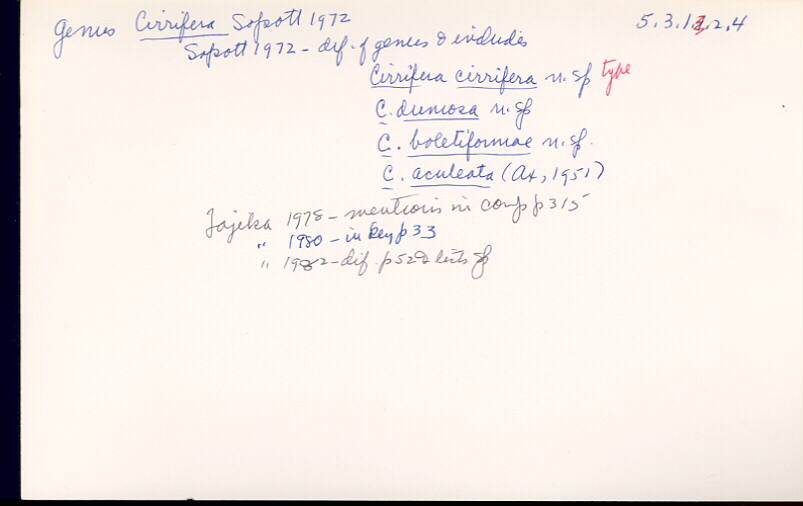 Genus Cirrifera Sopott 1972 5.3.1.2.4
Sopott 1972 - dif. of genus & includes
Cirrifera cirrifera n. sp type
C. dumosa n. sp
C. boletiformae n. sp.
C. aculeata (Ax, 1951)
Tajika 1978 - mentions in comp p 315
" 1980 - in key p 33
" 1982 - dif. p 52 & lists sp